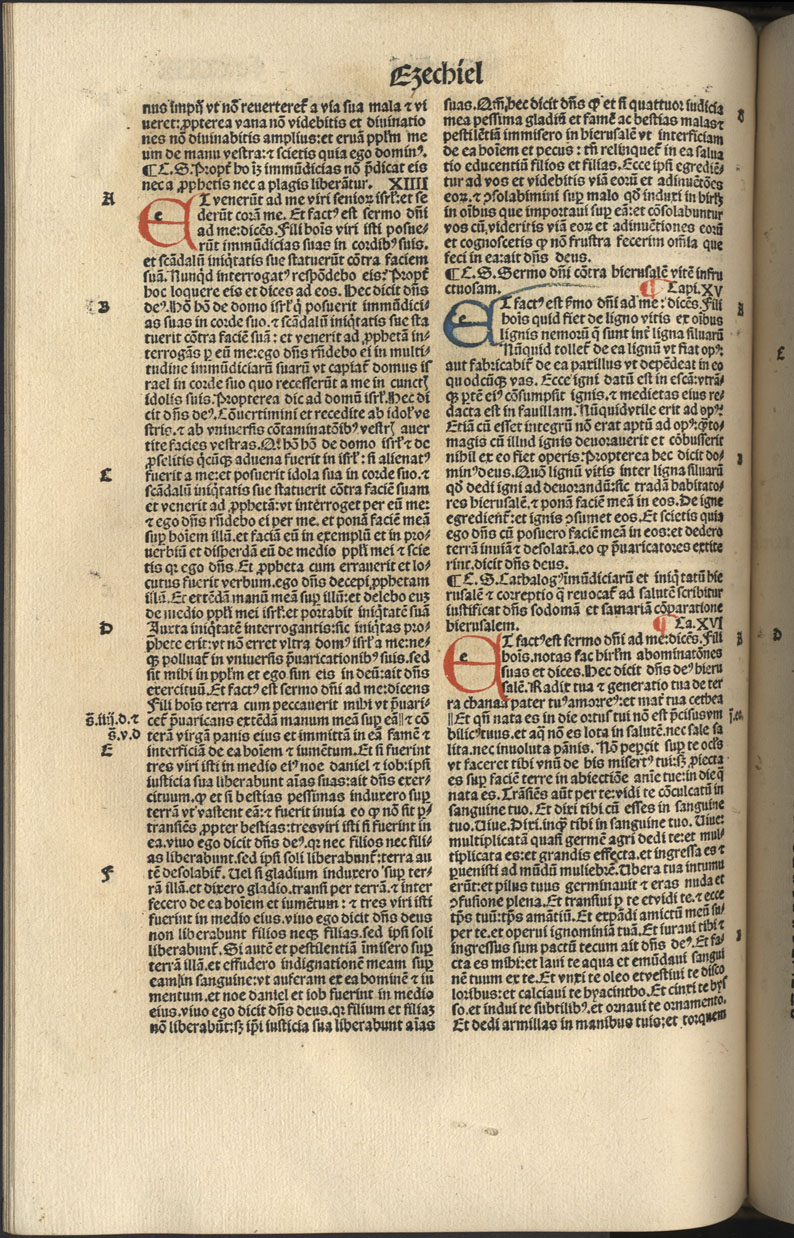 Ezechiel
nus impij vt nõ reverteret̃ a via sua mala ⁊ vi
ueret: ꝓpterea vana nõ videbitis et diuinatio
nes nõ diuinabitis amplius: et eruã ppłm me
um de manu vestra: ⁊ scietis quia ego domin⁹.
¶ C. S. Propt̃ hoĩs immũdicias nõ p̃dicat eis
nec a ꝓphetis nec a plagis liberãtur. XIIII
A
ET venerũt ad me viri senior isrł: et se
derũt corã me. Et fact⁹ est sermo dñi
ad me: dicẽs. Fili hoĩs viri isti posue-
rũt immũdicias suas in cordib⁹ suis.
et scãdalũ iniq̃tatis sue statuerũt cõtra faciem
suã. Nunqd interrogat⁹ respõdebo eis? Propt̃
hoc loquere eis et dices ad eos. Hec dicit dñs
B
de⁹. Hõ hõ de domo isrł q̃ posuerit immũdici-
as suas in corde suo. ⁊ scãdalũ iniq̃tatis sue sta
tuerit cõtra faciẽ suã: et venerit ad ꝓphetã in-
terrogãs p eũ me: ego dñs rñdebo ei in multi-
tudine immũdiciarũ suarũ vt capiat̃ domus is
rael in corde suo quo recesserũt a me in cunctꝭ
idolis suis. Propterea dic ad domũ isrł. Hec di
cit dñs de⁹. Cõuertimini et recedite ab idol⁹ ve
stris. ⁊ ab vniuersis cõtaminatõib⁹ vestrꝭ auer
tite facies vestras. Q̃ hõ hõ de domo isrł ⁊ de
ꝓselitis q̃cũqꝫ aduena fuerit in isrł: si alienat⁹
C
fuerit a me: et posuerit idola sua in corde suo. ⁊
scãdalũ iniq̃tatis sue statuerit cõtra faciẽ suam
et venerit ad ꝓphetã: vt interroget per eũ me:
⁊ ego dñs rñdebo ei per me. et ponã faciẽ meã
suꝑ hoiem illũ. et faciã eũ in exemplũ et in pro-
uerbiũ et disperdã eũ de medio ppłi mei ⁊ scie
tis qꝛ ego dñs. Et ꝓpheta cum errauerit et lo-
cutus fuerit verbum. ego dñs decepi ꝓphetam
illũ. Et extẽdã manũ meã suꝑ illũ: et delebo euꝫ
de medio ppłi mei isrł. et portabit iniq̃tatẽ suã
D
Juxta iniq̃tatẽ interrogantis: sic iniq̃tas pro-
phete erit: vt nõ erret vltra dom⁹ isrł a me: ne-
qꝫ polluat̃ in vniuersis p̃uaricationib⁹ suis. sed
sit mihi in ppłm et ego sim eis in deũ: ait dñs
exercituũ. Et fact⁹ est sermo dñi ad me: dicens
Fili hoĩs terra cum peccauerit mihi vt p̃uari-
g̃.iiij.d.⁊
cet̃ p̃uaricans extẽdã manum meã suꝑ eã || ⁊ cõ
g̃.v.d
terã virgã panis eius et immittã in eã famẽ ⁊
E
interficiã de ea hoĩem ⁊ iumẽtum. Et si fuerint
tres viri isti in medio ei⁹ noe daniel ⁊ iob: ipsi
iusticia sua liberabunt aĩas suas: ait dñs exer-
cituum. ꝙ et si bestias pessimas induxero suꝑ
terrã vt vastent eã: ⁊ fuerit inuia eo ꝙ nõ sit p̱-
transiẽs ꝓpter bestias: tres viri isti si fuerint in
ea. viuo ego dicit dñs de⁹. qꝛ nec filios nec fili-
as liberabunt. sed ipsi soli liberabunt̃: terra au
tẽ desolabit̃. Uel si gladium induxero suꝑ ter-
F
rã illã. et dixero gladio. transi per terrã. ⁊ inter
fecero de ea hoiem et iumẽtum: ⁊ tres viri isti
fuerint in medio eius. viuo ego dicit dñs deus
non liberabunt filios neqꝫ filias. sed ipsi soli
liberabunt̃. Si autẽ et pestilentiã ĩmisero suꝑ
terrã illã. et effudero indignationẽ meam suꝑ
eam in sanguine: vt auferam ex ea hominẽ ⁊ iu
mentum. et noe daniel et iob fuerint in medio
eius. viuo ego dicit dñs deus. qꝛ filium et filiaꝫ
nõ liberabũt: sꝫ ip̃i iusticia sua liberabunt aĩas
suas. Qm̃ hec dicit dñs ꝙ et si quattuor iudicia
mea pessima gladiũ et famẽ ac bestias malas ⁊
pestilẽtiã immisero in hierusalẽ vt interficiam
de ea hoĩem et pecus: tñ relinquet̃ in ea salua
tio educentiũ filios et filias. Ecce ipsi egrediẽ-
tur ad vos et videbitis viã eorũ et adinuẽtões
eoꝝ. ⁊ ꝯsolabimini suꝑ malo qd̃ induxi in hirłm
in oĩbus que importaui suꝑ eã: et cõsolabuntur
vos cũ videritis viã eoꝝ et adinuẽtiones eorũ
et cognoscetis ꝙ nõ frustra fecerim om̃ia que
feci in ea: ait dñs deus.
¶ C. S. Sermo dñi cõtra hierusalẽ vitẽ infru
ctuosam. ¶ Capi. XV
ET fact⁹ est s̃mo dñi ad me: dicẽs. Fili
hoĩs quid fiet de ligno vitis ex oĩbus
lignis nemorũ q̃ sunt int̃ ligna siluarũ
Nũquid tollet̃ de ea lignũ vt fiat op⁹:
aut fabricabit̃ de ea paxillus vt depẽdeat in eo
quodcũqꝫ vas. Ecce igni datũ est in escã: vtrã-
qꝫ p̱tẽ ei⁹ cõsumpsit ignis. ⁊ medietas eius re-
dacta est in fauillam. Nũquid vtile erit ad op⁹.
Etiã cũ esset integrũ nõ erat aptũ ad op⁹: q̃to-
magis cũ illud ignis deuorauerit et cõbusserit
nihil ex eo fiet operis. Propterea hec dicit do-
min⁹ deus. Quõ lignũ vitis inter ligna siluarũ
qd̃ dedi igni ad deuorandũ: sic tradã habitato-
res hierusalẽ. ⁊ ponã faciẽ meã in eos. De igne
egredient̃: et ignis ꝯsumet eos. Et scietis quia
ego dñs cũ posuero faciẽ meã in eos: et dedero
terrã inuiã ⁊ desolatã. eo ꝙ p̃uaricatores extite
rint. dicit dñs deus.
¶ C. S. Cathalog⁹ ĩmũdiciarũ et iniq̃tatũ hie
rusalẽ ⁊ correptio q̃ reuocat̃ ad salutẽ scribitur
iustificat dñs sodomã et samariã cõparatione
hierusalem. ¶ Ca. XVI
ET fact⁹ est sermo dñi ad me: dicẽs. Fili
hoĩs. notas fac hirłm abominatões
suas et dices. Hec dicit dñs de⁹ hieru
salẽ. Radix tua ⁊ generatio tua de ter
ra chanaã pater tu⁹ amorre⁹: et mat̃ tua cethea
|| Et qñ nata es in die ortus tui nõ est p̃cisus vm
bilic⁹ tuus. et aq̃ nõ es lota in salutẽ. nec sale sa
lita. nec inuoluta pãnis. Nõ peꝑcit suꝑ te ocłs
vt faceret tibi vnũ de his misert⁹ tui: sꝫ ꝓiecta
es suꝑ faciẽ terre in abiectiõe aĩe tue: in die q̃
nata es. Trãsiẽs aũt per te: vidi te cõculcatũ in
sanguine tuo. Et dixi tibi cũ esses in sanguine
tuo. Uiue. Dixi. inq̃ tibi in sanguine tuo. Uiue:
multiplicatã quasi germẽ agri dedi te: et mul-
tiplicata es: et grandis effecta. et ingressa es ⁊
p̱uenisti ad mũdũ muliebrẽ. Ubera tua intumu
erũt: et pilus tuus germinauit ⁊ eras nuda et
ꝯfusione plena. Et transiui p te et vidi te. ⁊ ecce
tp̃s tuũ: tp̃s amãtiũ. Et expãdi amictũ meũ su-
per te. et operui ignominiã tuã. Et iuraui tibi ⁊
ingressus sum pactũ tecum ait dñs de⁹. Et fa-
cta es mihi: et laui te aqua et emũdaui sangui
nẽ tuum ex te. Et vnxi te oleo et vestiui te disco
loribus: et calciaui te hyacintho. Et cinxi te bys
so. et indui te subtilib⁹. et ornaui te ornamento.
Et dedi armillas in manibus tuis: et torquem